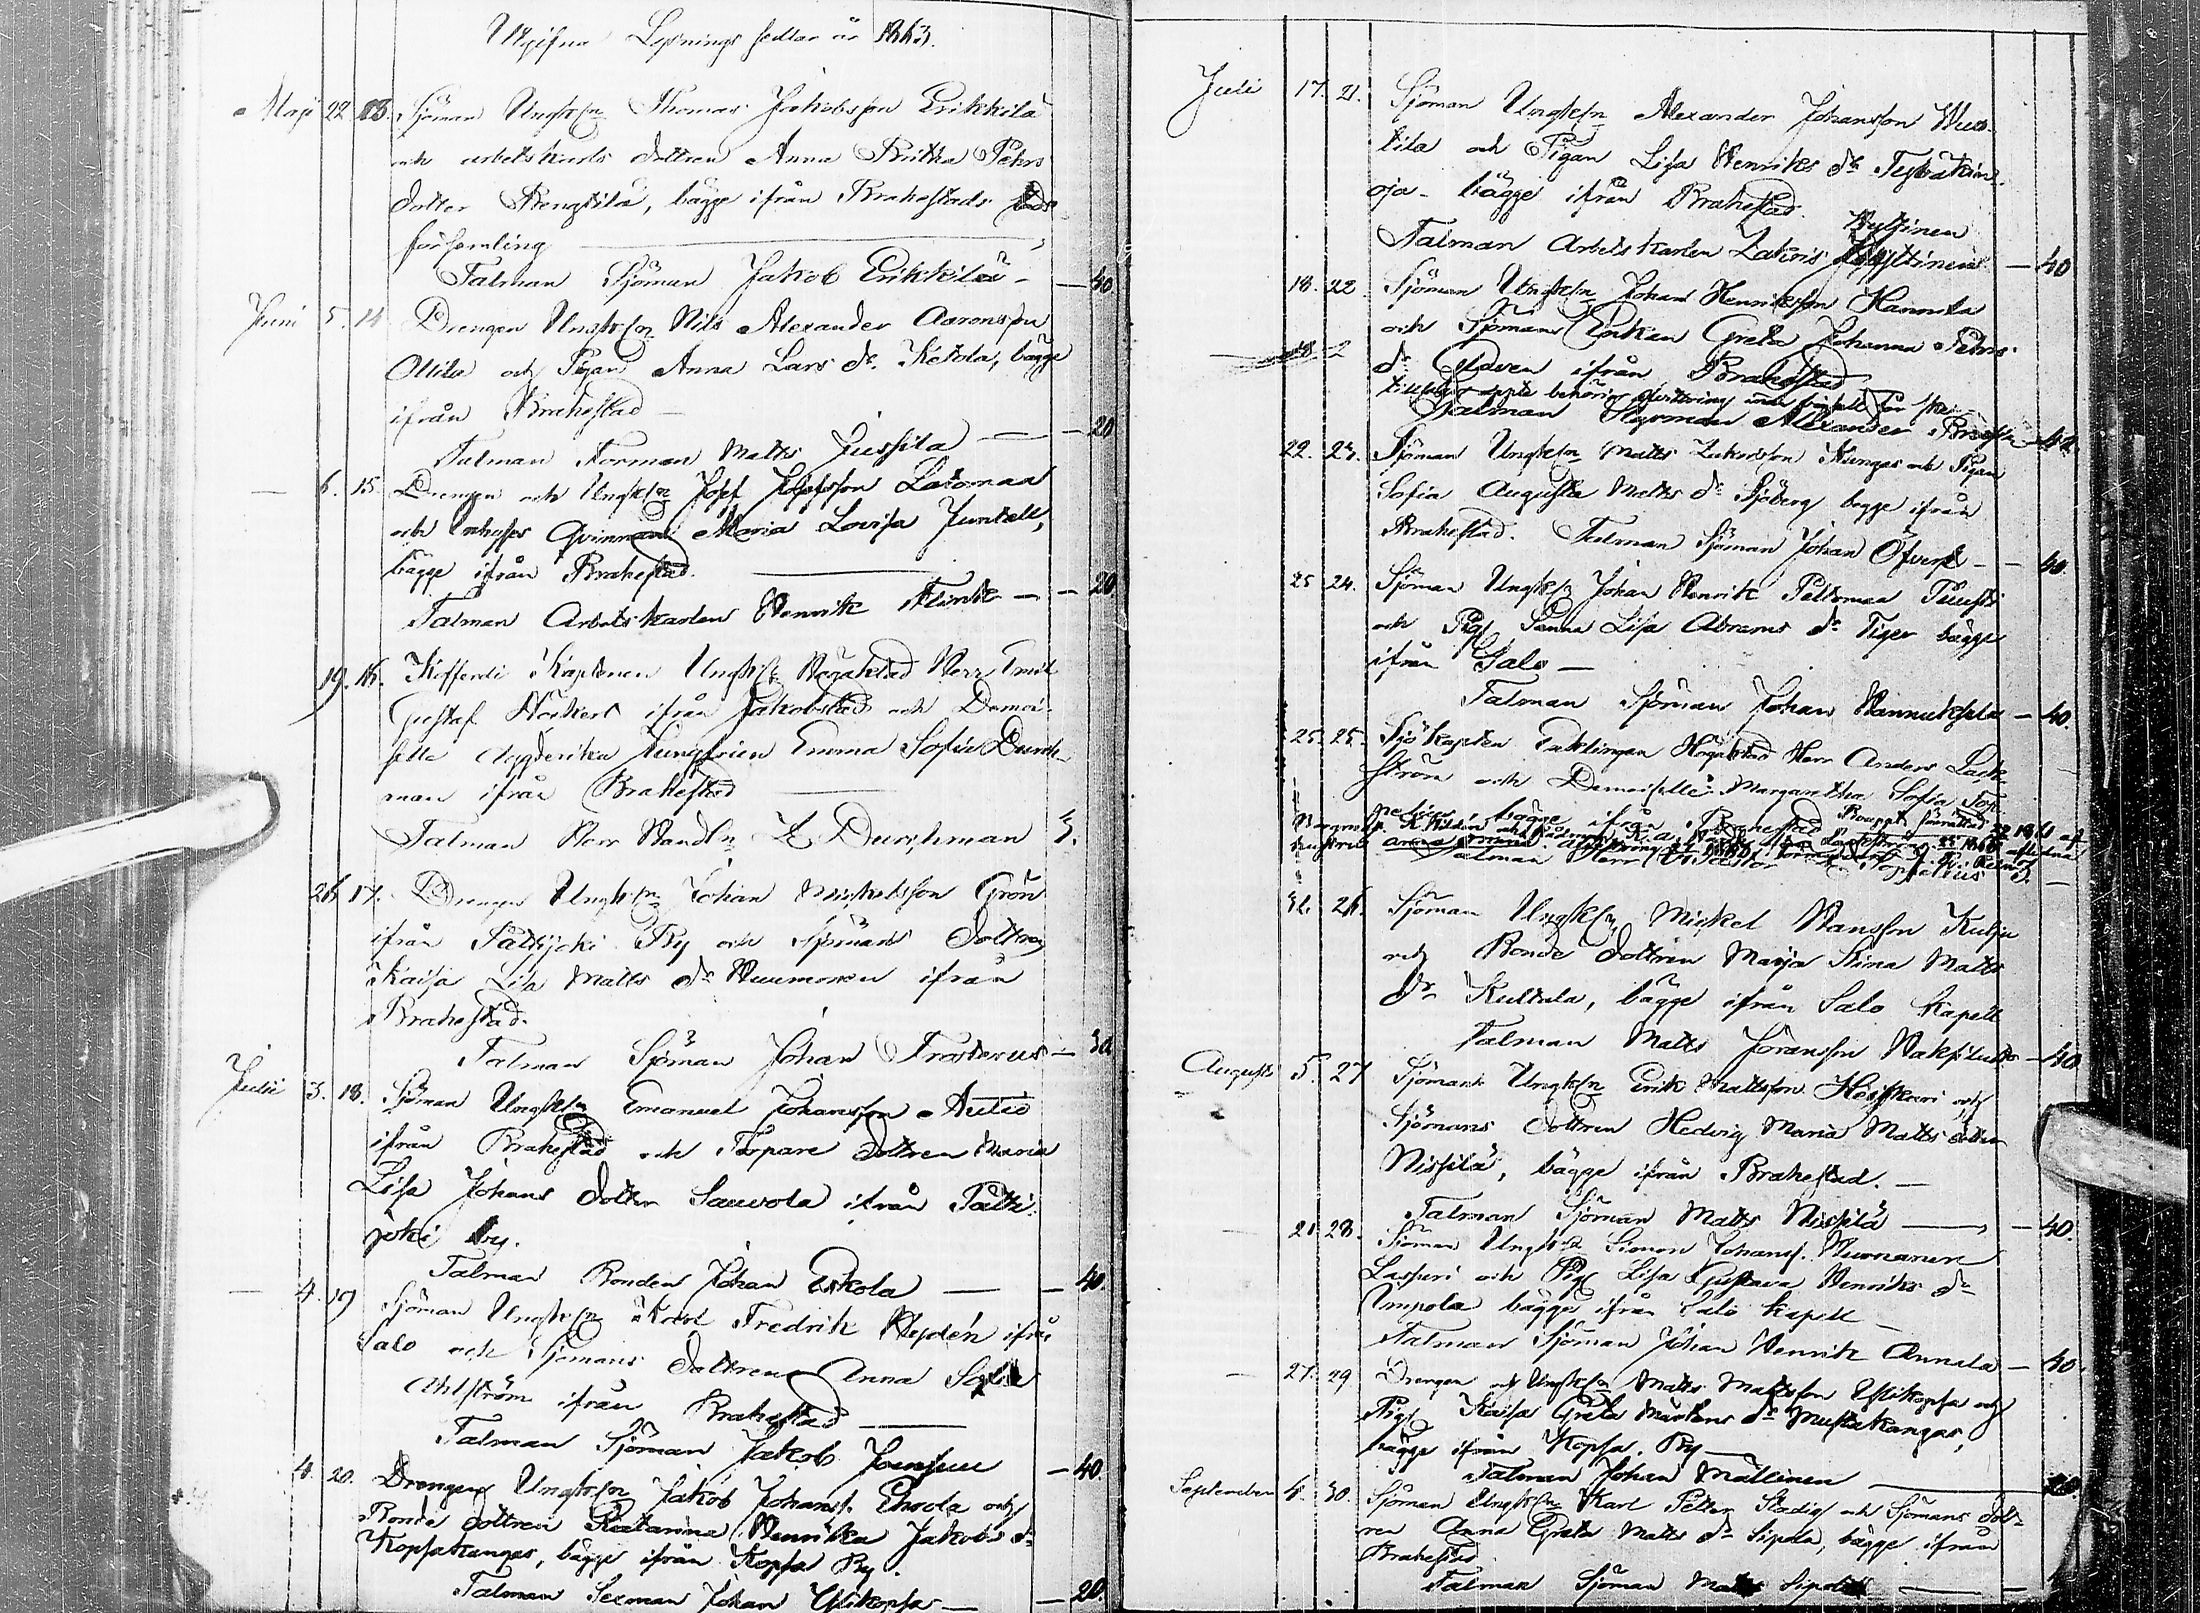 Utgifna Lysnings sedlar år 1863.
Maji 22 13. Sjöman Ungk:ln Thomas Jakobsson Erikkilä
och arbetskarls dottren Anna Britha Pehrs
dotter Rengtilä, bägge ifrån Brahestads
församling
Talman Sjöman Jakob Erikkilä — 40.
Juni 5. 14 Drengen Ungk:ln Nils Alexander Aaronsson
Ollila och Pigan Anna Lars dr. Ketola, bägge
ifrån Brahestad —
Talman Norman Matts Jussila — 20
— 6. 15. Drengen och Ungk:ln Josef Josefsson Latomaa
och Inhyses Qvinnan Maria Lovisa Juntell,
bägge ifrån Brahestad.
Talman Arbetskarlen Henrik Flink — 20
19. 16. Kofferdi Kaptenen Ungk:ln Högaktad Herr Emil
Gustaf Höckert ifrån Jakobstad och Demoi-
selle Jungfrun Emma Sofia Durch-
man ifrån Brahestad
Talman Herr Handl:n Z Durchman 3.
26 17. Drengen Ungk:ln Johan Mickelsson Grön
ifrån Pattijoki By och Sjömans dottren
Kaisa Lisa Matts dr Huumonen ifrån
Brahestad.
Talman Sjöman Johan Frosterus — 30
Julii 3. 18. Sjöman Ungk:ln Emanuel Johansson Autio
ifrån Brahestad och Torpare dottren Maria
Lisa Johans dotter Sauvola ifrån Patti-
joki by.
Talman Bonden Johan Eskola — 40
— 4. 19 Sjöman Ungk:ln Karl Fredrik Heydén ifrån
Salo och Sjömans dottren Anna Sofia
Ahlström ifrån Brahestad
Talman Sjöman Jakob Joensuu — 40
4. 20. Drengen Ungk:ln Jakob Johanss. Ehrola och
Bonde dottren Katarina Henrika Jakobs dr
Kopsakangas, bägge ifrån Kopsa By.
Talman Sexman Johan Ylikopsa — 20.
Juli 17. 21. Sjöman Ungk:ln Alexander Johansson
tila och Pigan Lisa Henriks dr
oja — bägge ifrån Brahestad.
Hyttinen
Talman Arbetskarlen Zakris — 40
18. 22 Sjöman Ungk:ln Johan Henriksson Hannula
och Sjömans Enkan Greta Johanna Pehrs
dr ifrån Brahestad
behörig qvittering
Talman Styrman Alexander — 40
22. 23. Sjöman Ungk:ln Matts Zakrisson Kangas och Pigan
Sofia Augusta Matts dr Sjöberg begge ifrån
Brahestad. Talman Sjöman Johan Öfverk — 40.
25 24. Sjöman Ungk:ln Johan Henrik Pettersson
och Pig. Sanna Lisa Abrams dr Tiger bägge
ifrån Salo —
Talman Sjöman Johan Hannuksela — 40.
25. 25. Sjökapten Enklingen Högaktad Herr Anders Lack-
ström och Demoiselle Margaretha Sofia Top-
pelius bägge ifrån Brahestad
Talman Herr Toppelius 3. —
31. 26. Sjöman Ungk:ln Mickel Hansson Kulju
och Bonde dottren Maija Stina Matts
dr Kultala, bägge ifrån Salo Kapell
Talman Matts Joransson — 40
Augusti 5. 27 Sjöman Ungk:ln Erik Mattsson Heiskari och
Sjömans dottren Hedvig Maria Matts dotter
Nissilä, bägge ifrån Brahestad. —
Talman Sjöman Matts Nissilä — 40.
21. 28. Sjöman Ungk:ln Simon Johanss.
Lasseri och Pig. Lisa Gustava Henriks dr
Impola bägge ifrån Salo kapell —
Talman Sjöman Johan Henrik Annala — 40.
— 27. 29. Drengen och Ungk:ln Matts Mattsson Ylikopsa och
Pig. Kaisa Greta Mårtens dr Mustakangas,
bägge ifrån Kopsa. By —
Talman Johan Mällinen — 20.
September 4. 30. Sjöman Ungk:ln Karl Petter Stadig och Sjömans dott-
ren Anna Greta Matts dr Sipola, bägge ifrån
Brahestad
Talman Sjöman Matts Sipola —